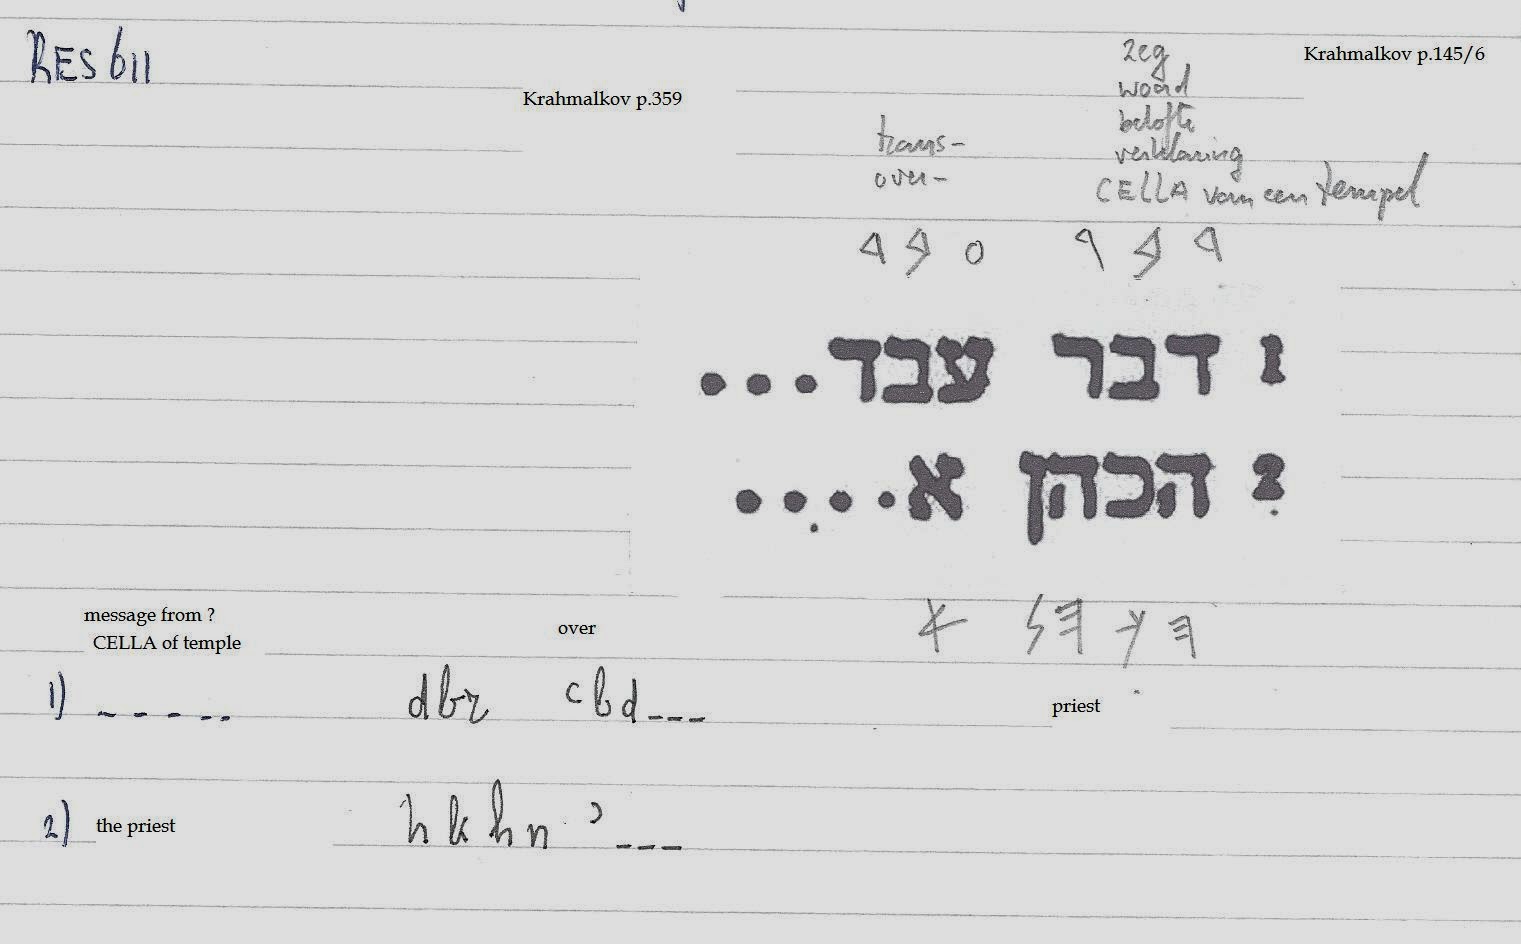 RES 611
Krahmalkov p.359
Krahmalkov p.145/6
zeg
woord
belofte
verklaring
CELLA van een tempel
trans-
over-
𐤃𐤁𐤓 𐤏𐤁𐤃
1 דבר עבד...
2 הכהן א....
𐤄𐤊𐤄𐤍 𐤀
message from ?
CELLA of temple
over
1) ----- dbr ʿbd---
priest
2) the priest hkhn ʾ---